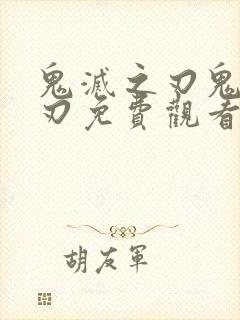 鬼滅之刃鬼
刃免費觀看
胡友軍